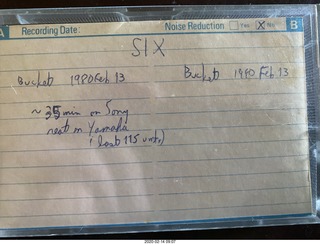 A Recording Date: Noise Reduction Yes X No B
SIX
Bucket 1980 Feb 13 Bucket 1990 Feb 13
~ 35 min on Sony
rest on Yamaha
(last 115 units)
2020-02-14 09:07